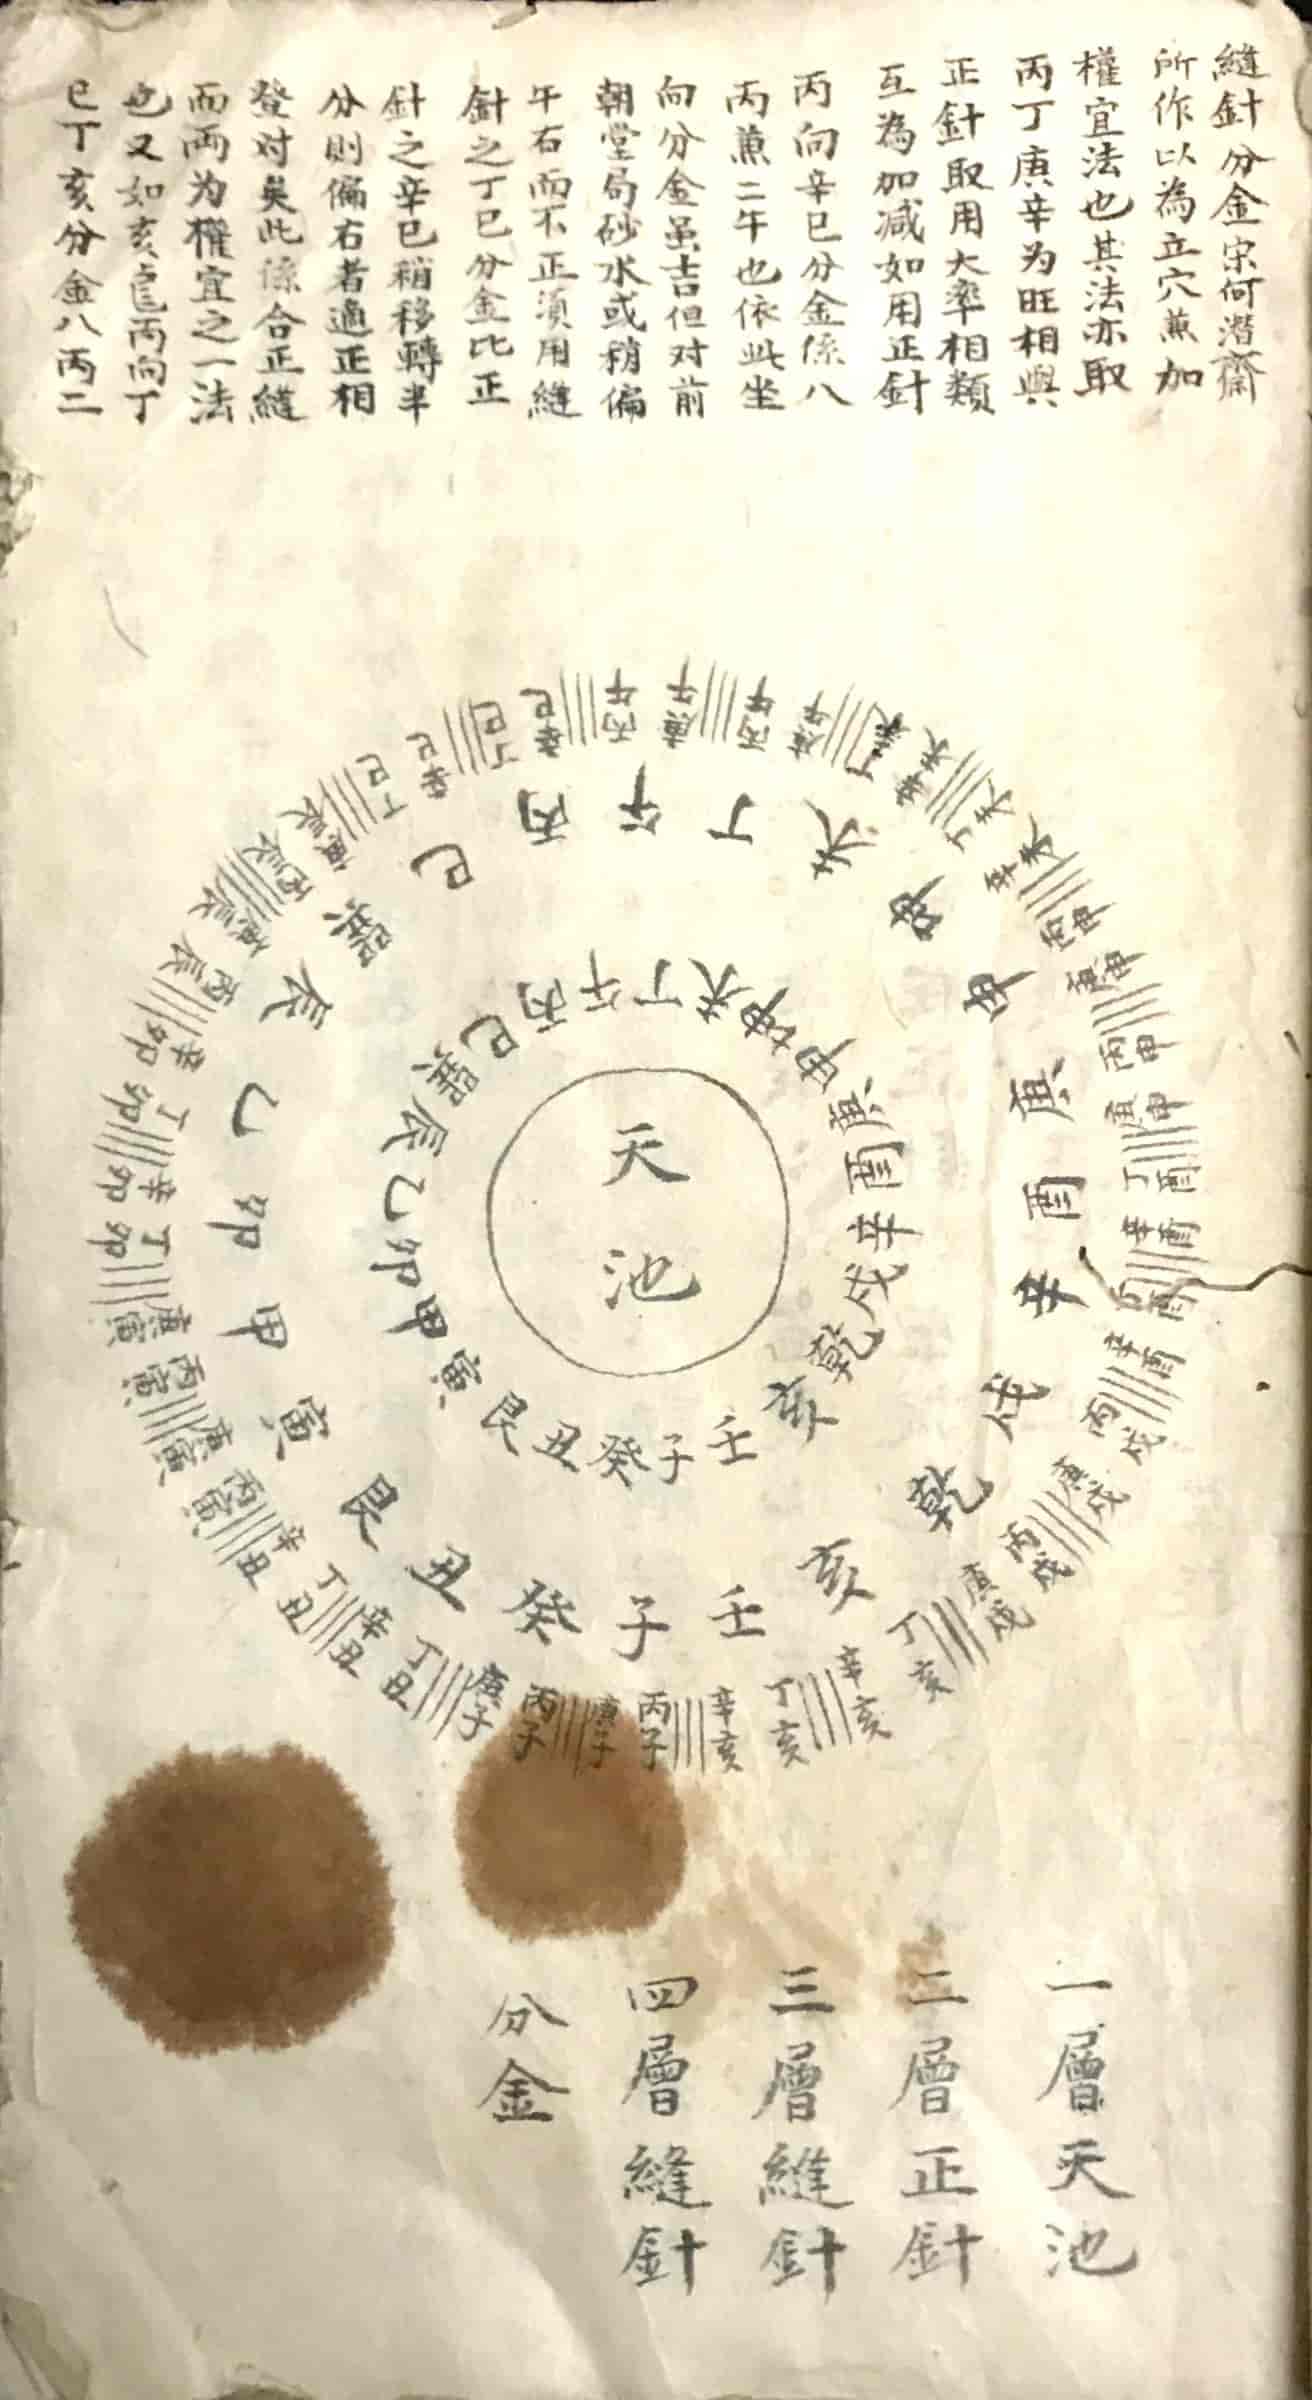 縫針分金宋何潛齋
所作以為立穴兼加
權宜法也其法亦取
丙丁庚辛为旺相與
正針取用大率相類
互為加减如用正針
丙向辛巳分金係八
丙兼二午也依此坐
向分金虽吉但对前
朝堂局砂水或稍偏
午右而不正湏用縫
針之丁巳分金比正
針之辛巳稍移轉半
分則偏右者適正相
登对矣此係合正縫
而两为權宜之一法
也又如亥龍丙向丁
巳丁亥分金八丙二
天池
午丁未坤申庚酉辛戌乾亥壬子癸丑艮寅甲卯乙辰巽巳丙
午丁未坤申庚酉辛戌乾亥壬子癸丑艮寅甲卯乙辰巽巳丙
丙午
庚午
丙午
庚午
丁未
辛未
丁未
辛未
丙申
庚申
丙申
庚申
丁酉
辛酉
丁酉
辛酉
丙戌
庚戌
丙戌
庚戌
丁亥
辛亥
丁亥
辛亥
丙子
庚子
丙子
庚子
丁丑
辛丑
丁丑
辛丑
丙寅
庚寅
丙寅
庚寅
丁卯
辛卯
丁卯
辛卯
丙辰
庚辰
丙辰
庚辰
丁巳
辛巳
丁巳
辛巳
一層天池
二層正針
三層縫針
四層縫針
分金